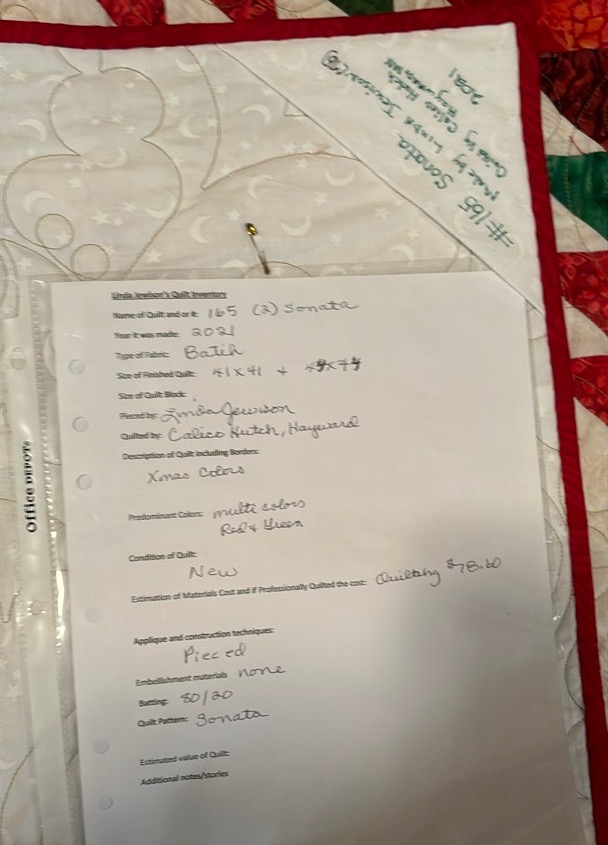 #165 Sonata
Made by Linda Jewison (2)
Quilted by Calico Hutch
Hayward
2021
Linda Jewison's Quilt Inventory
Name of Quilt and or #: 165 (2) Sonata
Year it was made: 2021
Type of Fabric: Batik
Size of Finished Quilt: 41 x 41 +
Size of Quilt Block:
Pieced by: Linda Jewison
Quilted by: Calico Hutch, Hayward
Description of Quilt including Borders:
Xmas Colors
Predominant Colors: multi colors
Red & Green
Condition of Quilt:
New
Estimation of Materials Cost and if Professionally Quilted the cost: Quilting $78.60
Applique and construction techniques:
Pieced
Embellishment materials none
Batting: 80/20
Quilt Pattern: Sonata
Estimated value of Quilt:
Additional notes/stories
Office DEPOT